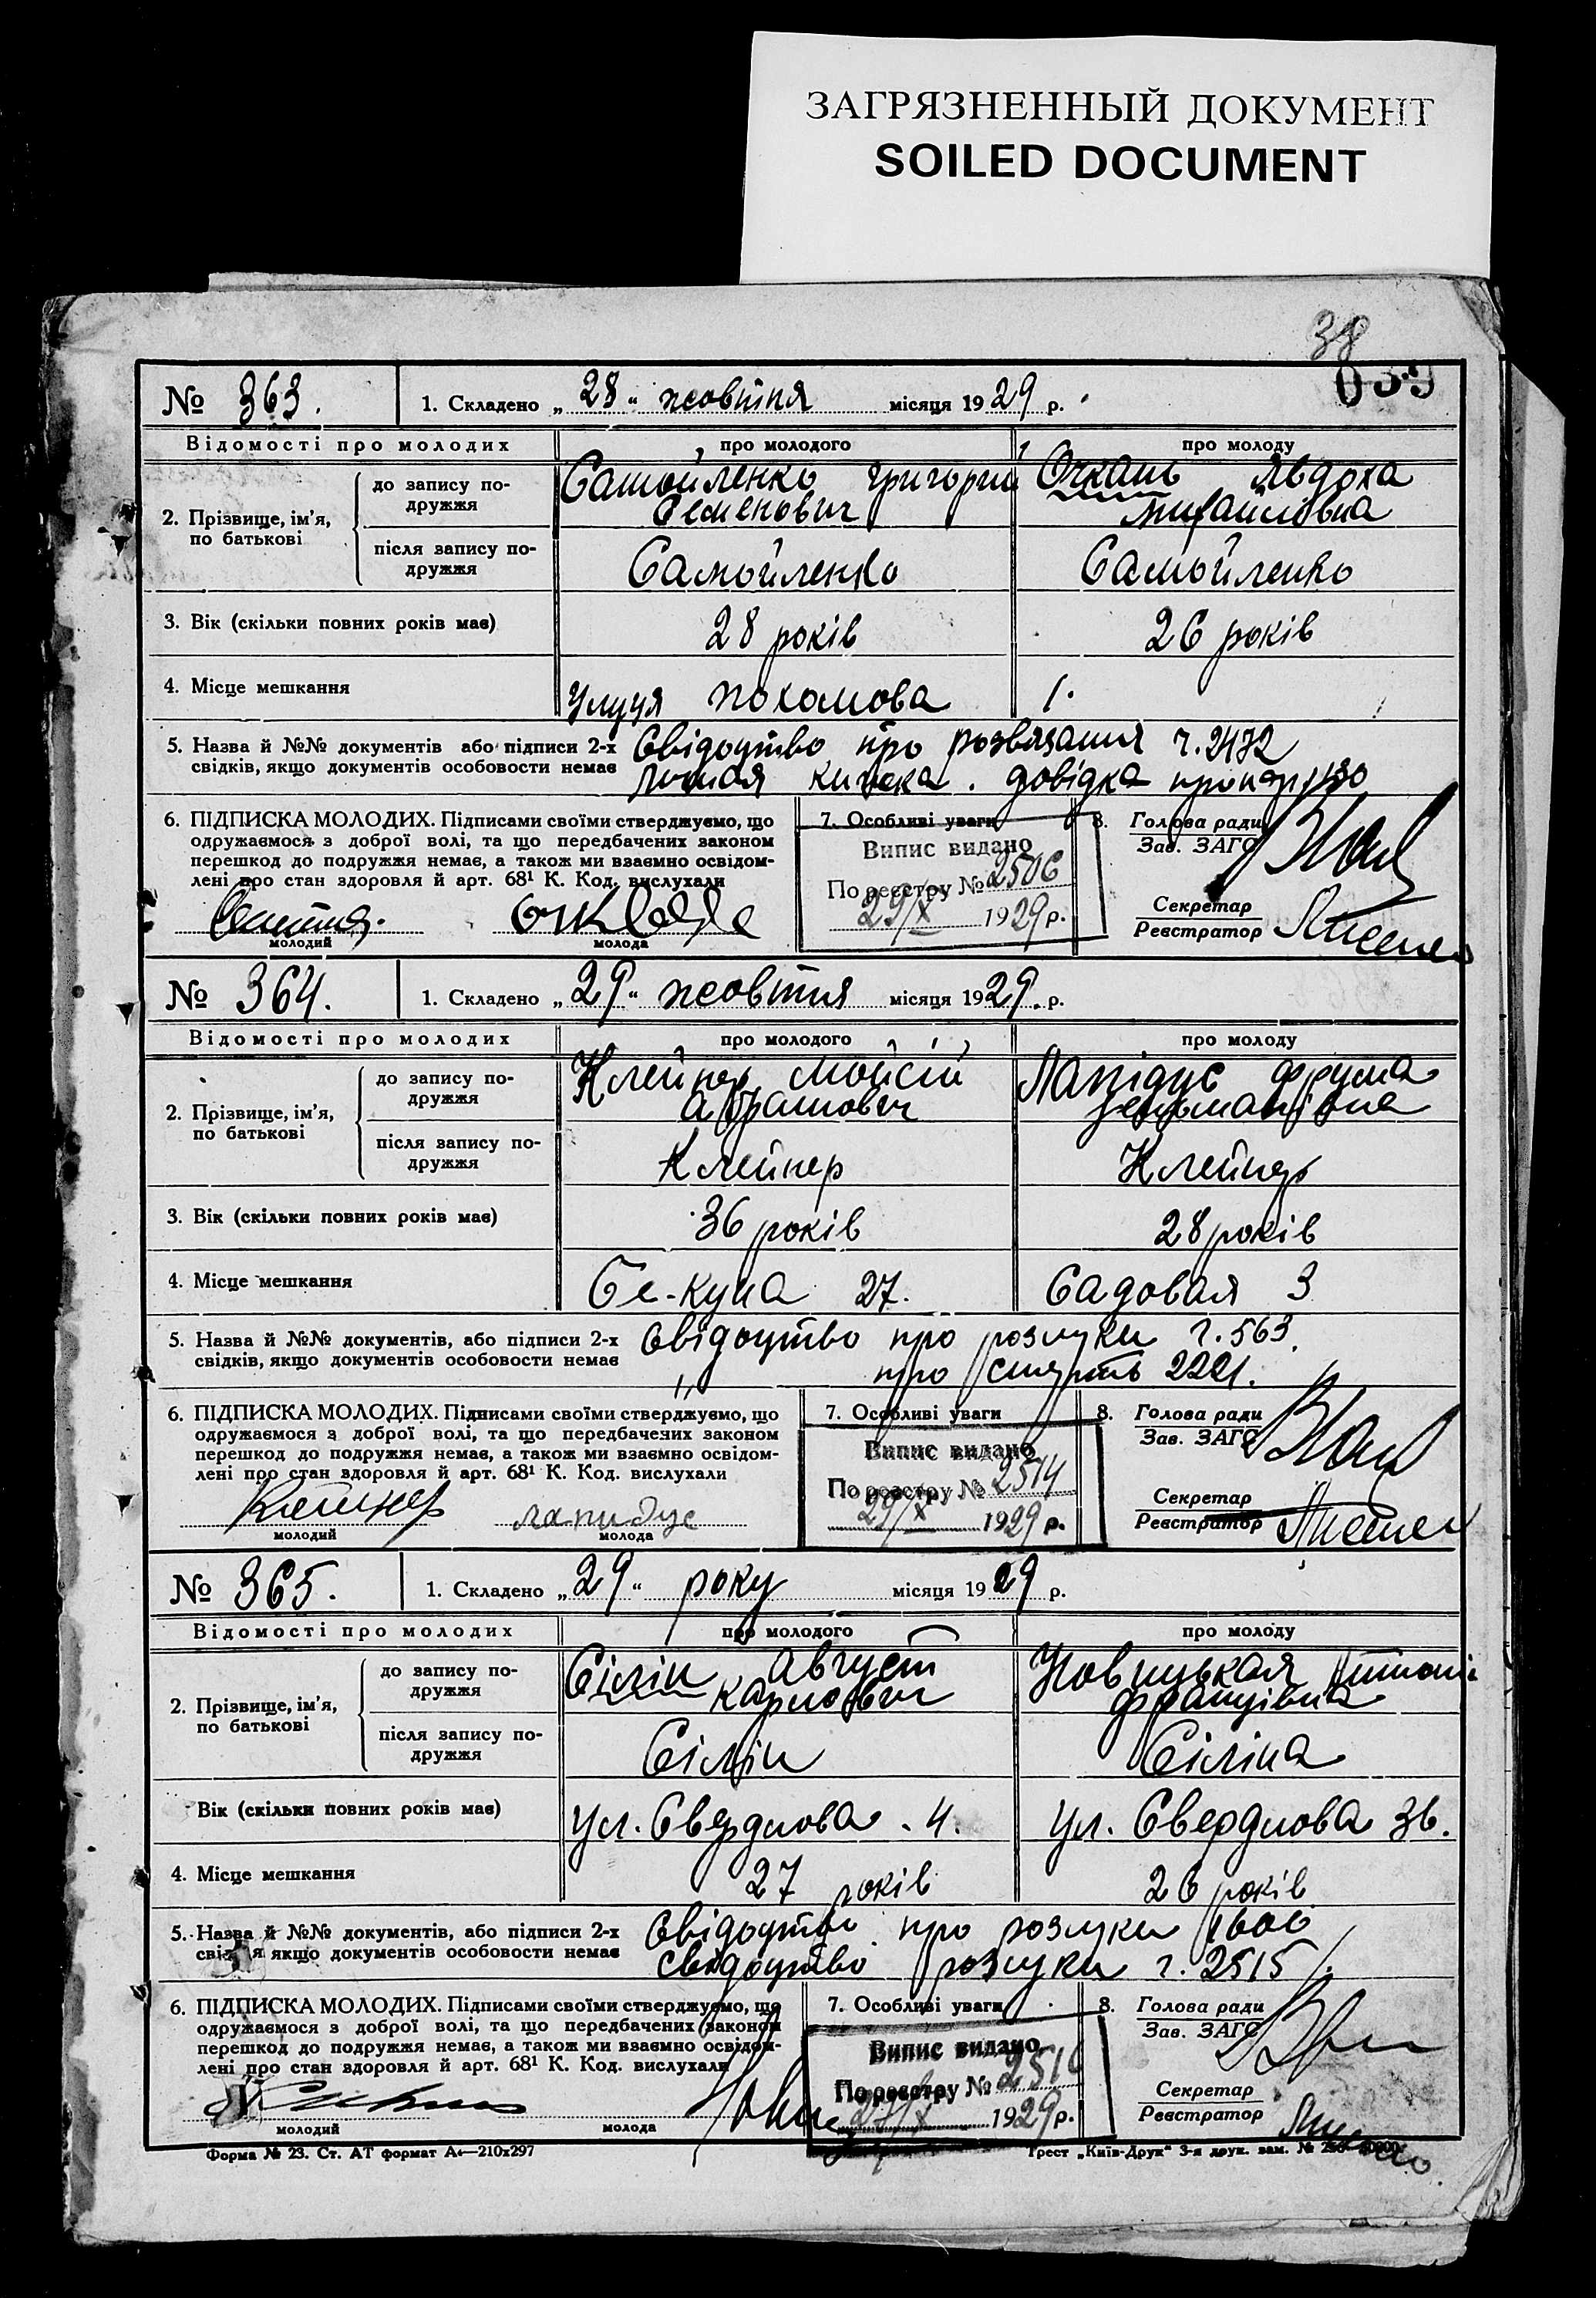 ЗАГРЯЗНЕННЫЙ ДОКУМЕНТ
SOILED DOCUMENT
38
039
№ 363. 1. Складено „28“ жовтня місяця 1929 р.
Відомості про молодих про молодого про молоду
2. Прізвище, ім’я, по батькові
до запису подружжя Самойленко Григорий Семенович Очкань Явдоха Михайловна
після запису подружжя Самойленко Самойленко
3. Вік (скільки повних років має) 28 років 26 років
4. Місце мешкання Улуця
5. Назва й №№ документів або підписи 2-х Свідоцтво про розвязання ч. 2472
свідків, якщо документів особовости немає книжка. довідка про
6. ПІДПИСКА МОЛОДИХ. Підписами своїми стверджуємо, що
одружаємося з доброї волі, та що передбачених законом
перешкод до подружжя немає, а також ми взаємно освідом-
лені про стан здоровля й арт. 68¹ К. Код. вислухали
молодий молода
7. Особливі уваги
Випис видано
По реєстру № 2506
29/X 1929 р.
8. Голова ради
Зав. ЗАГС
Секретар
Реєстратор
№ 364. 1. Складено „29“ жовтня місяця 1929. р.
Відомості про молодих про молодого про молоду
2. Прізвище, ім’я, по батькові
до запису подружжя Клейнер Мойсій Абрамович Лапідус Фрума
після запису подружжя Клейнер Клейнер
3. Вік (скільки повних років має) 36 років 28 років
4. Місце мешкання 27. Садовая 3
5. Назва й №№ документів, або підписи 2-х Свідоцтво про розлуки ч. 563.
свідків, якщо документів особовости немає " про смерть 2221.
6. ПІДПИСКА МОЛОДИХ. Підписами своїми стверджуємо, що
одружаємося з доброї волі, та що передбачених законом
перешкод до подружжя немає, а також ми взаємно освідом-
лені про стан здоровля й арт. 68¹ К. Код. вислухали
Клейнер лапидус
молодий молода
7. Особливі уваги
Випис видано
По реєстру № 2514
29/X 1929 р.
8. Голова ради
Зав. ЗАГС
Секретар
Реєстратор
№ 365. 1. Складено „29“ року місяця 1929 р.
Відомості про молодих про молодого про молоду
2. Прізвище, ім’я, по батькові
до запису подружжя Сілін Август Карлович Новицькая Францівна
після запису подружжя Сілін Сіліна
Вік (скільки повних років має) ул. Свердлова. 4. ул. Свердлова 36.
4. Місце мешкання 27 років 26 років
5. Назва й №№ документів, або підписи 2-х Свідоцтво про розлуки 1606
якщо документів особовости немає Свідоцтво розлуки ч. 2515
6. ПІДПИСКА МОЛОДИХ. Підписами своїми стверджуємо, що
одружаємося з доброї волі, та що передбачених законом
перешкод до подружжя немає, а також ми взаємно освідом-
лені про стан здоровля й арт. 68¹ К. Код. вислухали
молодий молода
7. Особливі уваги
Випис видано
По реєстру №
1929 р.
8. Голова ради
Зав. ЗАГС
Секретар
Реєстратор
Форма № 23. Ст. АТ формат А4—210х297 Трест „Київ-Друк“ 3-я друк. зам. №